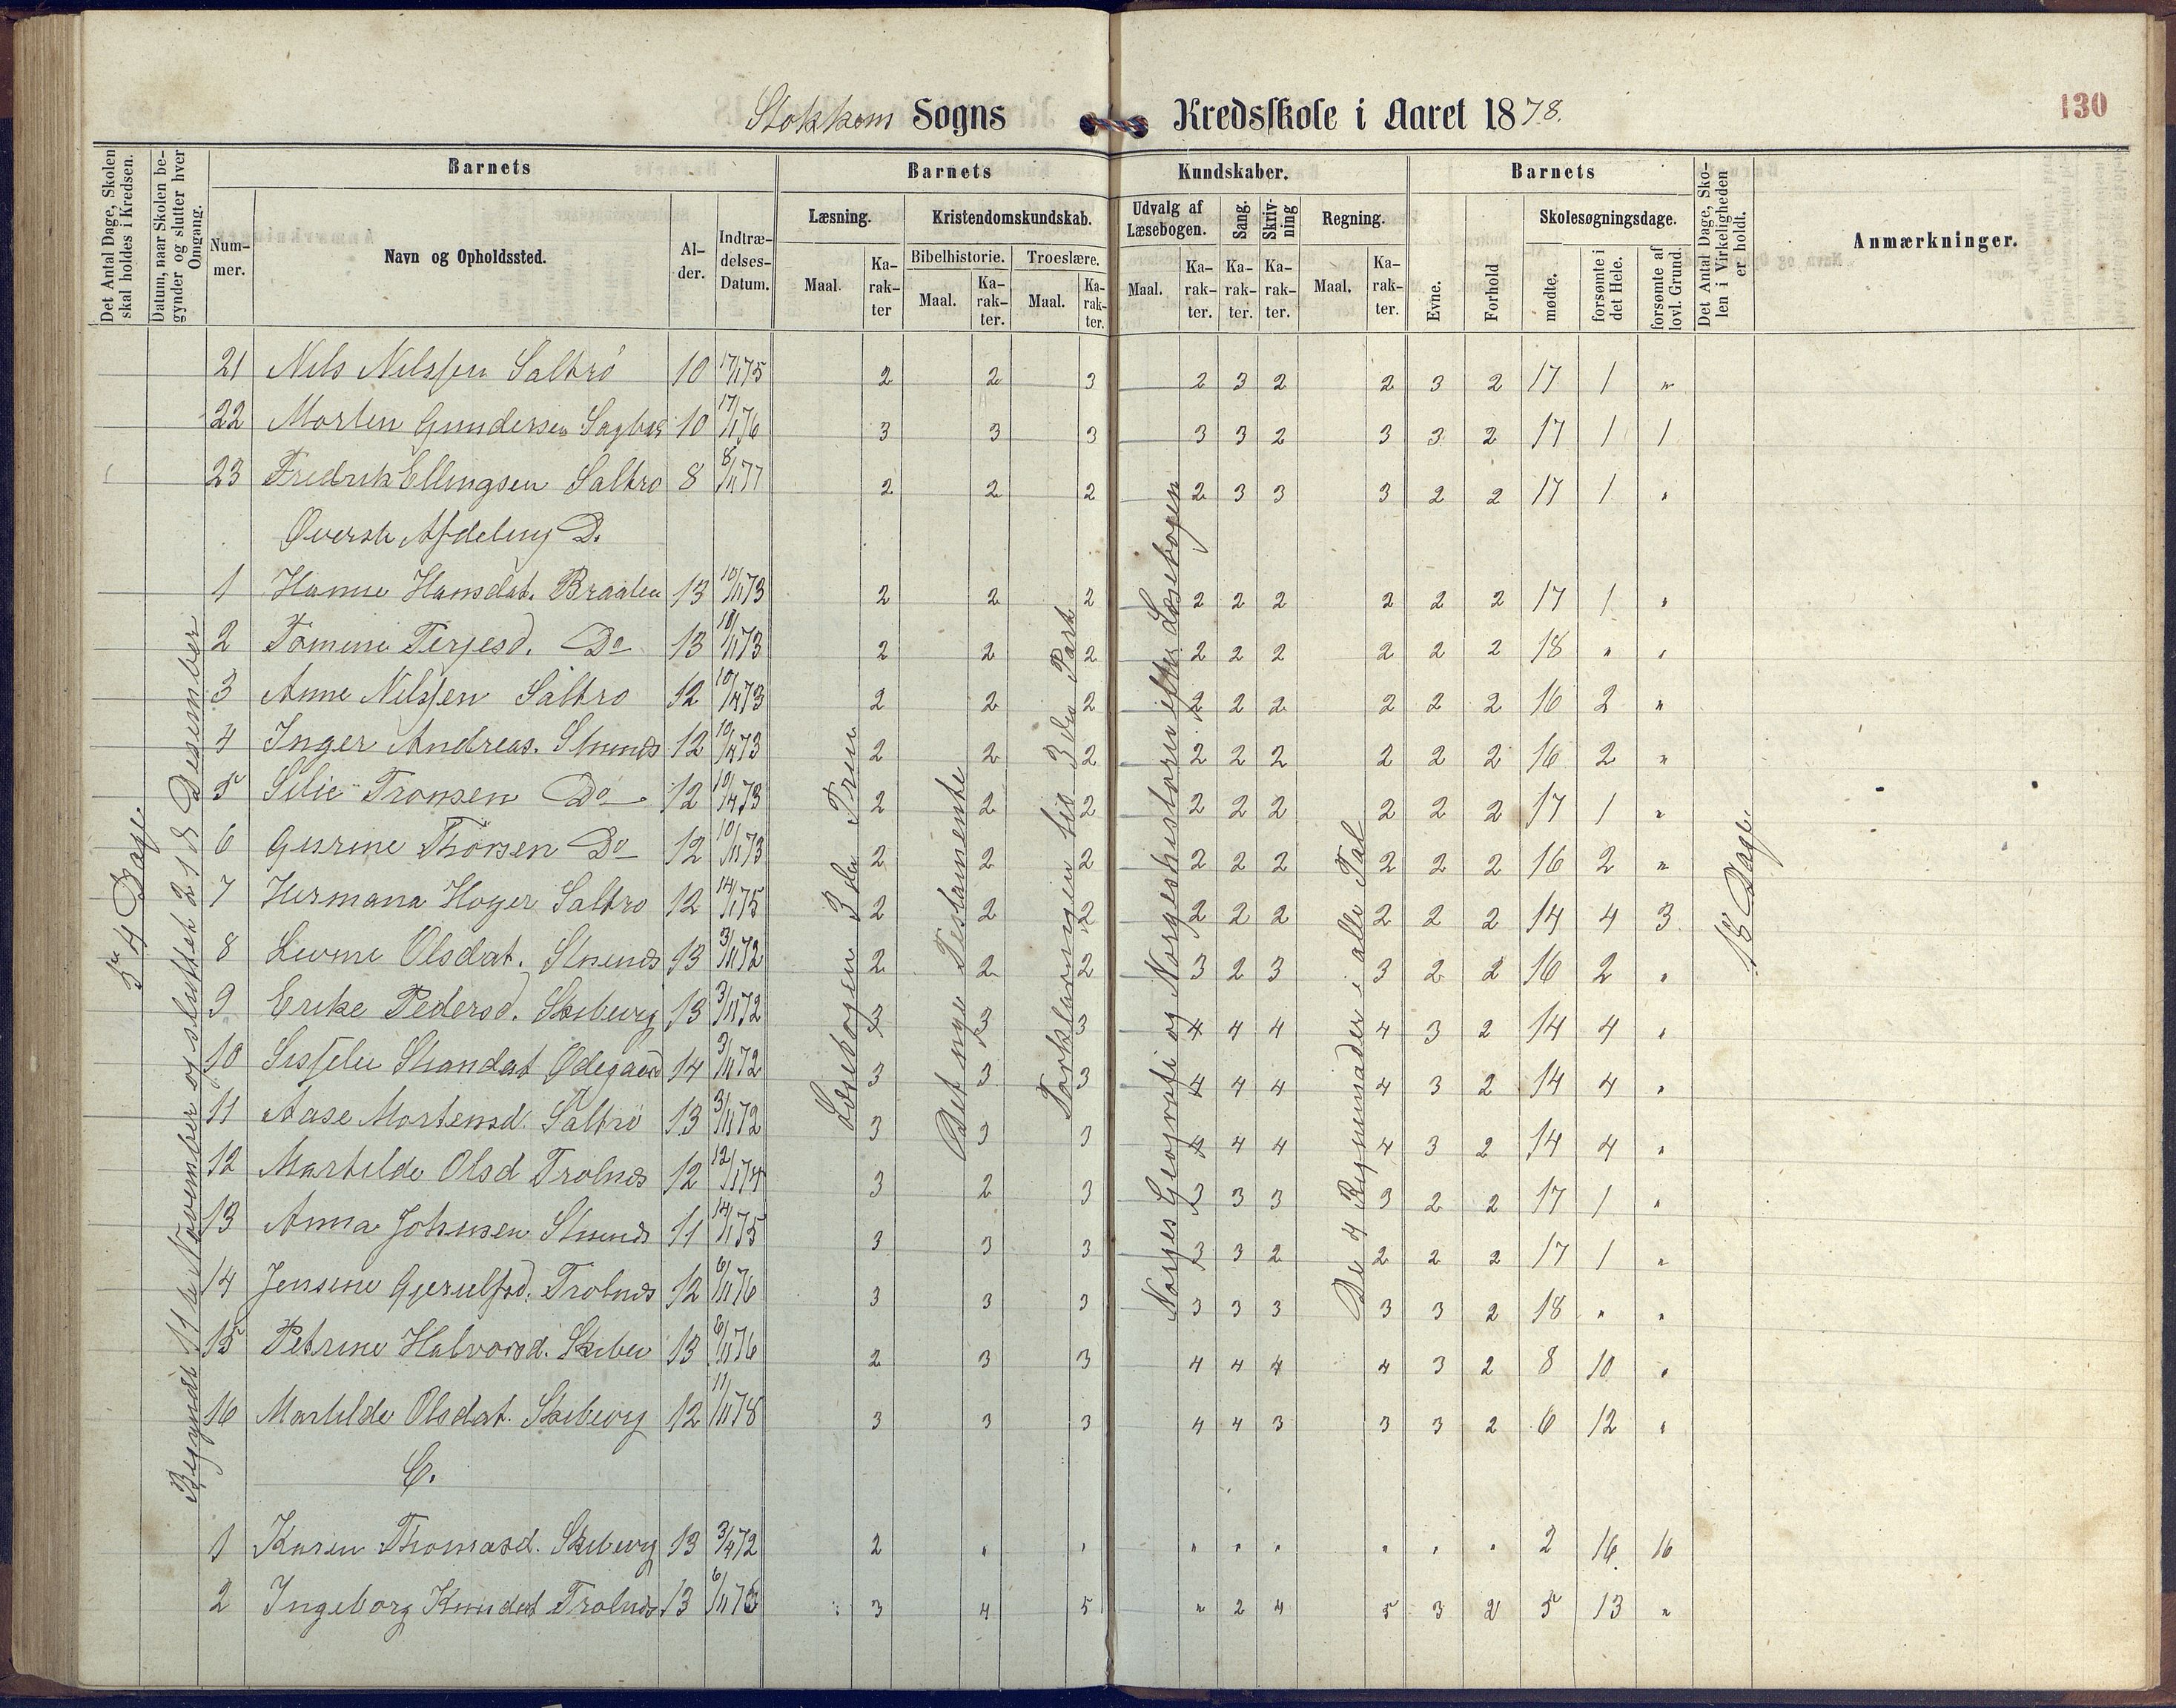 Stokken Sogns Kredsskole i Aaret 1878.
130
Det Antal Dage, Skolen skal holdes i Kredsen.
Datum, naar Skolen begynder og slutter hver Omgang.
Barnets
Nummer.
Navn og Opholdssted.
Alder.
Indtrædelses-Datum.
Barnets Kundskaber.
Læsning.
Maal. Karakter
Kristendomskundskab.
Bibelhistorie. Troeslære.
Maal. Karakter. Maal. Karakter.
Udvalg af Læsebogen.
Maal. Karakter.
Sang. Karakter.
Skrivning Karakter.
Regning.
Maal. Karakter.
Barnets
Evne.
Forhold
Skolesøgningsdage.
mødte.
forsømte i det Hele.
forsømte af lovl. Grund.
Det Antal Dage, Skolen i Virkeligheden er holdt.
Anmærkninger.
54 Dage
Begyndt 11te November og sluttet 21de Desember
Læsebogen 3die Trin
Det nye Testamente
Forklaringen til 3die Part
Norges Geografi og Norgeshistorien efter Læsebogen
De 4 Regnemaader i alle Tal
18 Dage
21 Nils Nilssen Saltrö 10 17/1 75 2 2 3 2 3 2 2 3 2 17 1 "
22 Morten Gundersen 10 17/1 76 3 3 3 3 3 2 3 3 2 17 1 1
23 Fredrik Ellingsen Saltro 8 8/11 77 2 2 2 2 3 3 3 2 2 17 1 "
Øverste Afdeling D.
1 Hanne Hansdat. Braaten 13 10/11 73 2 2 2 2 2 2 2 2 2 17 1 "
2 Tomine Terjesd. Do 13 10/11 73 2 2 2 2 2 2 2 2 2 18 " "
3 Anne Nilssen Saltro 12 10/11 73 2 2 2 2 2 2 2 2 2 16 2 "
4 Inger Andreas. 12 10/11 73 2 2 2 2 2 2 2 2 2 16 2 "
5 Silie Tronsen Do 12 10/11 73 2 2 2 2 2 2 2 2 2 17 1 "
6 Gurine Thorsen Do 12 10/11 73 2 2 2 2 2 2 2 2 2 16 2 "
7 Hermana Hoyer Saltro 12 14/1 75 2 2 2 2 2 2 2 2 2 14 4 3
8 Olsdat. 13 3/11 72 2 2 2 3 2 3 3 2 2 16 2 "
9 Erike Pedersd. Skiberg 13 3/11 72 3 3 3 4 4 4 4 3 2 14 4 "
10 Ødegaard 14 3/11 72 3 3 3 4 4 4 4 3 2 14 4 "
11 Aase Mortensd. Saltrö 13 3/11 72 3 3 3 4 4 4 4 3 2 14 4 "
12 Martilde Olsd Trolnes 12 12/1 74 3 2 3 3 3 3 3 2 2 17 1 "
13 Anna Johnsen 11 14/1 75 3 3 3 3 3 2 2 2 2 17 1 "
14 Jensine Gjerulfsd. Trolnes 12 6/11 76 3 3 3 3 3 3 3 3 2 18 " "
15 Petrine Halvorsd. 13 6/11 76 2 3 3 4 4 4 4 3 2 8 10 "
16 Martilde Olsdat. Skiberg 12 11/11 78 3 3 3 4 4 3 3 3 2 6 12 "
C.
1 Karen Thomasd. Skiberg 13 3/11 72 2 " " " " " " " " 2 16 16
2 Ingeborg Knudsd Trolnes 13 6/11 3 4 5 " 2 4 5 3 2 5 13 "